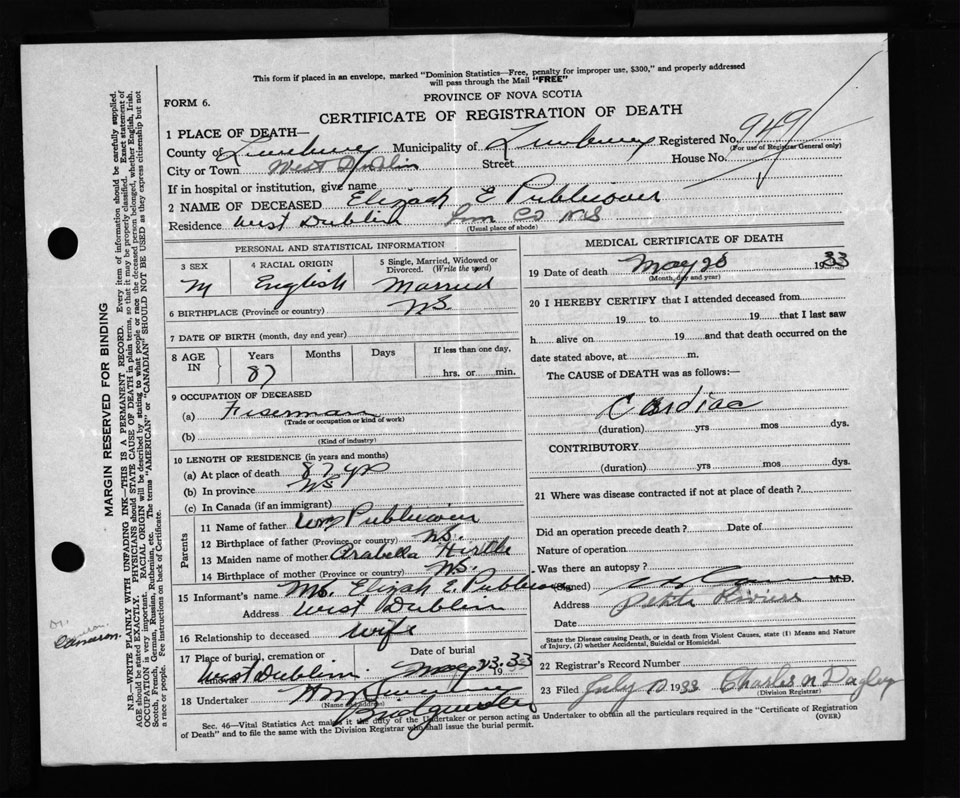 This form if placed in an envelope, marked "Dominion Statistics—Free, penalty for improper use, $300," and properly addressed
will pass through the Mail "FREE"
PROVINCE OF NOVA SCOTIA
FORM 6.
CERTIFICATE OF REGISTRATION OF DEATH
1 PLACE OF DEATH—
County of Lunenburg Municipality of Lunenburg Registered No. 949
(For use of Registrar General only)
City or Town West Dublin Street House No.
If in hospital or institution, give name
2 NAME OF DECEASED Elizah E Publicover
Residence West Dublin Lun Co N.S
(Usual place of abode)
PERSONAL AND STATISTICAL INFORMATION
3 SEX 4 RACIAL ORIGIN 5 Single, Married, Widowed or Divorced. (Write the word)
M English Married
6 BIRTHPLACE (Province or country) N.S.
7 DATE OF BIRTH (month, day and year)
8 AGE IN Years Months Days If less than one day,
87 hrs. or min.
9 OCCUPATION OF DECEASED
(a) Fiserman
(Trade or occupation or kind of work)
(b)
(Kind of industry)
10 LENGTH OF RESIDENCE (in years and months)
(a) At place of death 87 yr
(b) In province NS
(c) In Canada (if an immigrant)
Parents
11 Name of father Wm Publicover
12 Birthplace of father (Province or country) N.S.
13 Maiden name of mother Arabella Hirtle
14 Birthplace of mother (Province or country) N.S.
15 Informant's name Ms. Elizah E. Publicover
Address West Dublin
16 Relationship to deceased wife
17 Place of burial, cremation or Date of burial
West Dublin May 23 1933
18 Undertaker
(Name and address)
Bridgewater
MEDICAL CERTIFICATE OF DEATH
19 Date of death May 20 1933
(Month, day and year)
20 I HEREBY CERTIFY that I attended deceased from
19 to 19 that I last saw
h alive on 19 and that death occurred on the
date stated above, at m.
The CAUSE of DEATH was as follows:—
Cardiac
(duration) yrs mos dys.
CONTRIBUTORY
(duration) yrs mos dys.
21 Where was disease contracted if not at place of death?
Did an operation precede death? Date of
Nature of operation
Was there an autopsy?
(Signed) M.D.
Address Petite Riviere
Date
State the Disease causing Death, or in death from Violent Causes, state (1) Means and Nature
of Injury, (2) whether Accidental, Suicidal or Homicidal.
22 Registrar's Record Number
23 Filed July 10 1933 Charles N Dagley
(Division Registrar)
Sec. 46—Vital Statistics Act makes it the duty of the Undertaker or person acting as Undertaker to obtain all the particulars required in the "Certificate of Registration
of Death" and to file the same with the Division Registrar who shall issue the burial permit. (OVER)
MARGIN RESERVED FOR BINDING
N.B.—WRITE PLAINLY WITH UNFADING INK—THIS IS A PERMANENT RECORD. Every item of information should be carefully supplied.
AGE should be stated EXACTLY. PHYSICIANS should STATE CAUSE OF DEATH in plain terms, so that it may be properly classified. Exact statement of
OCCUPATION is very important. RACIAL ORIGIN will be described by stating to what people or race the deceased person belonged, whether English, Irish,
Scotch, French, German, Russian, Ruthenian, etc. The terms "AMERICAN" or "CANADIAN" SHOULD NOT BE USED as they express citizenship but not
a race or people. See instructions on back of Certificate.
Dr. Cameron.